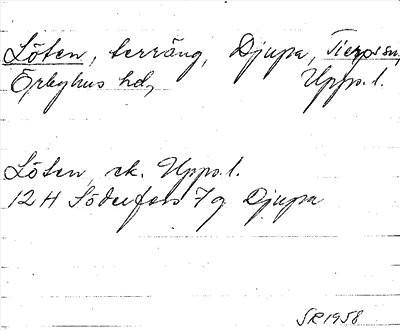 Löten, terräng, Djupa, Tierps sn,
Örbyhus hd, Upps. l.
Löten, ek. Upps. l.
12 H Söderfors 7 g Djupa
SR 1958